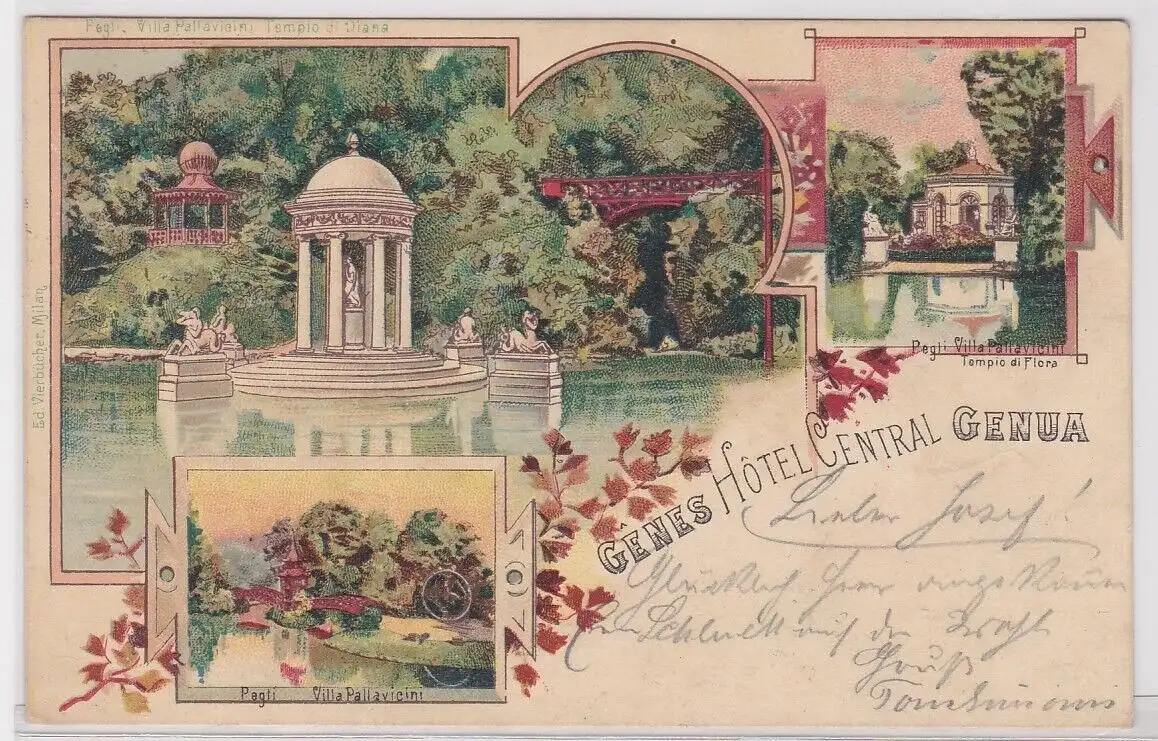 Pegli. Villa Pallavicini Tempio di Diana
Ed. Vierbücher, Milan
Pegli Villa Pallavicini
Tempio di Flora
GÊNES HÔTEL CENTRAL GENUA
Pegli Villa Pallavicini
Lieber Josef!
Glücklich hier
auf der
Gruß